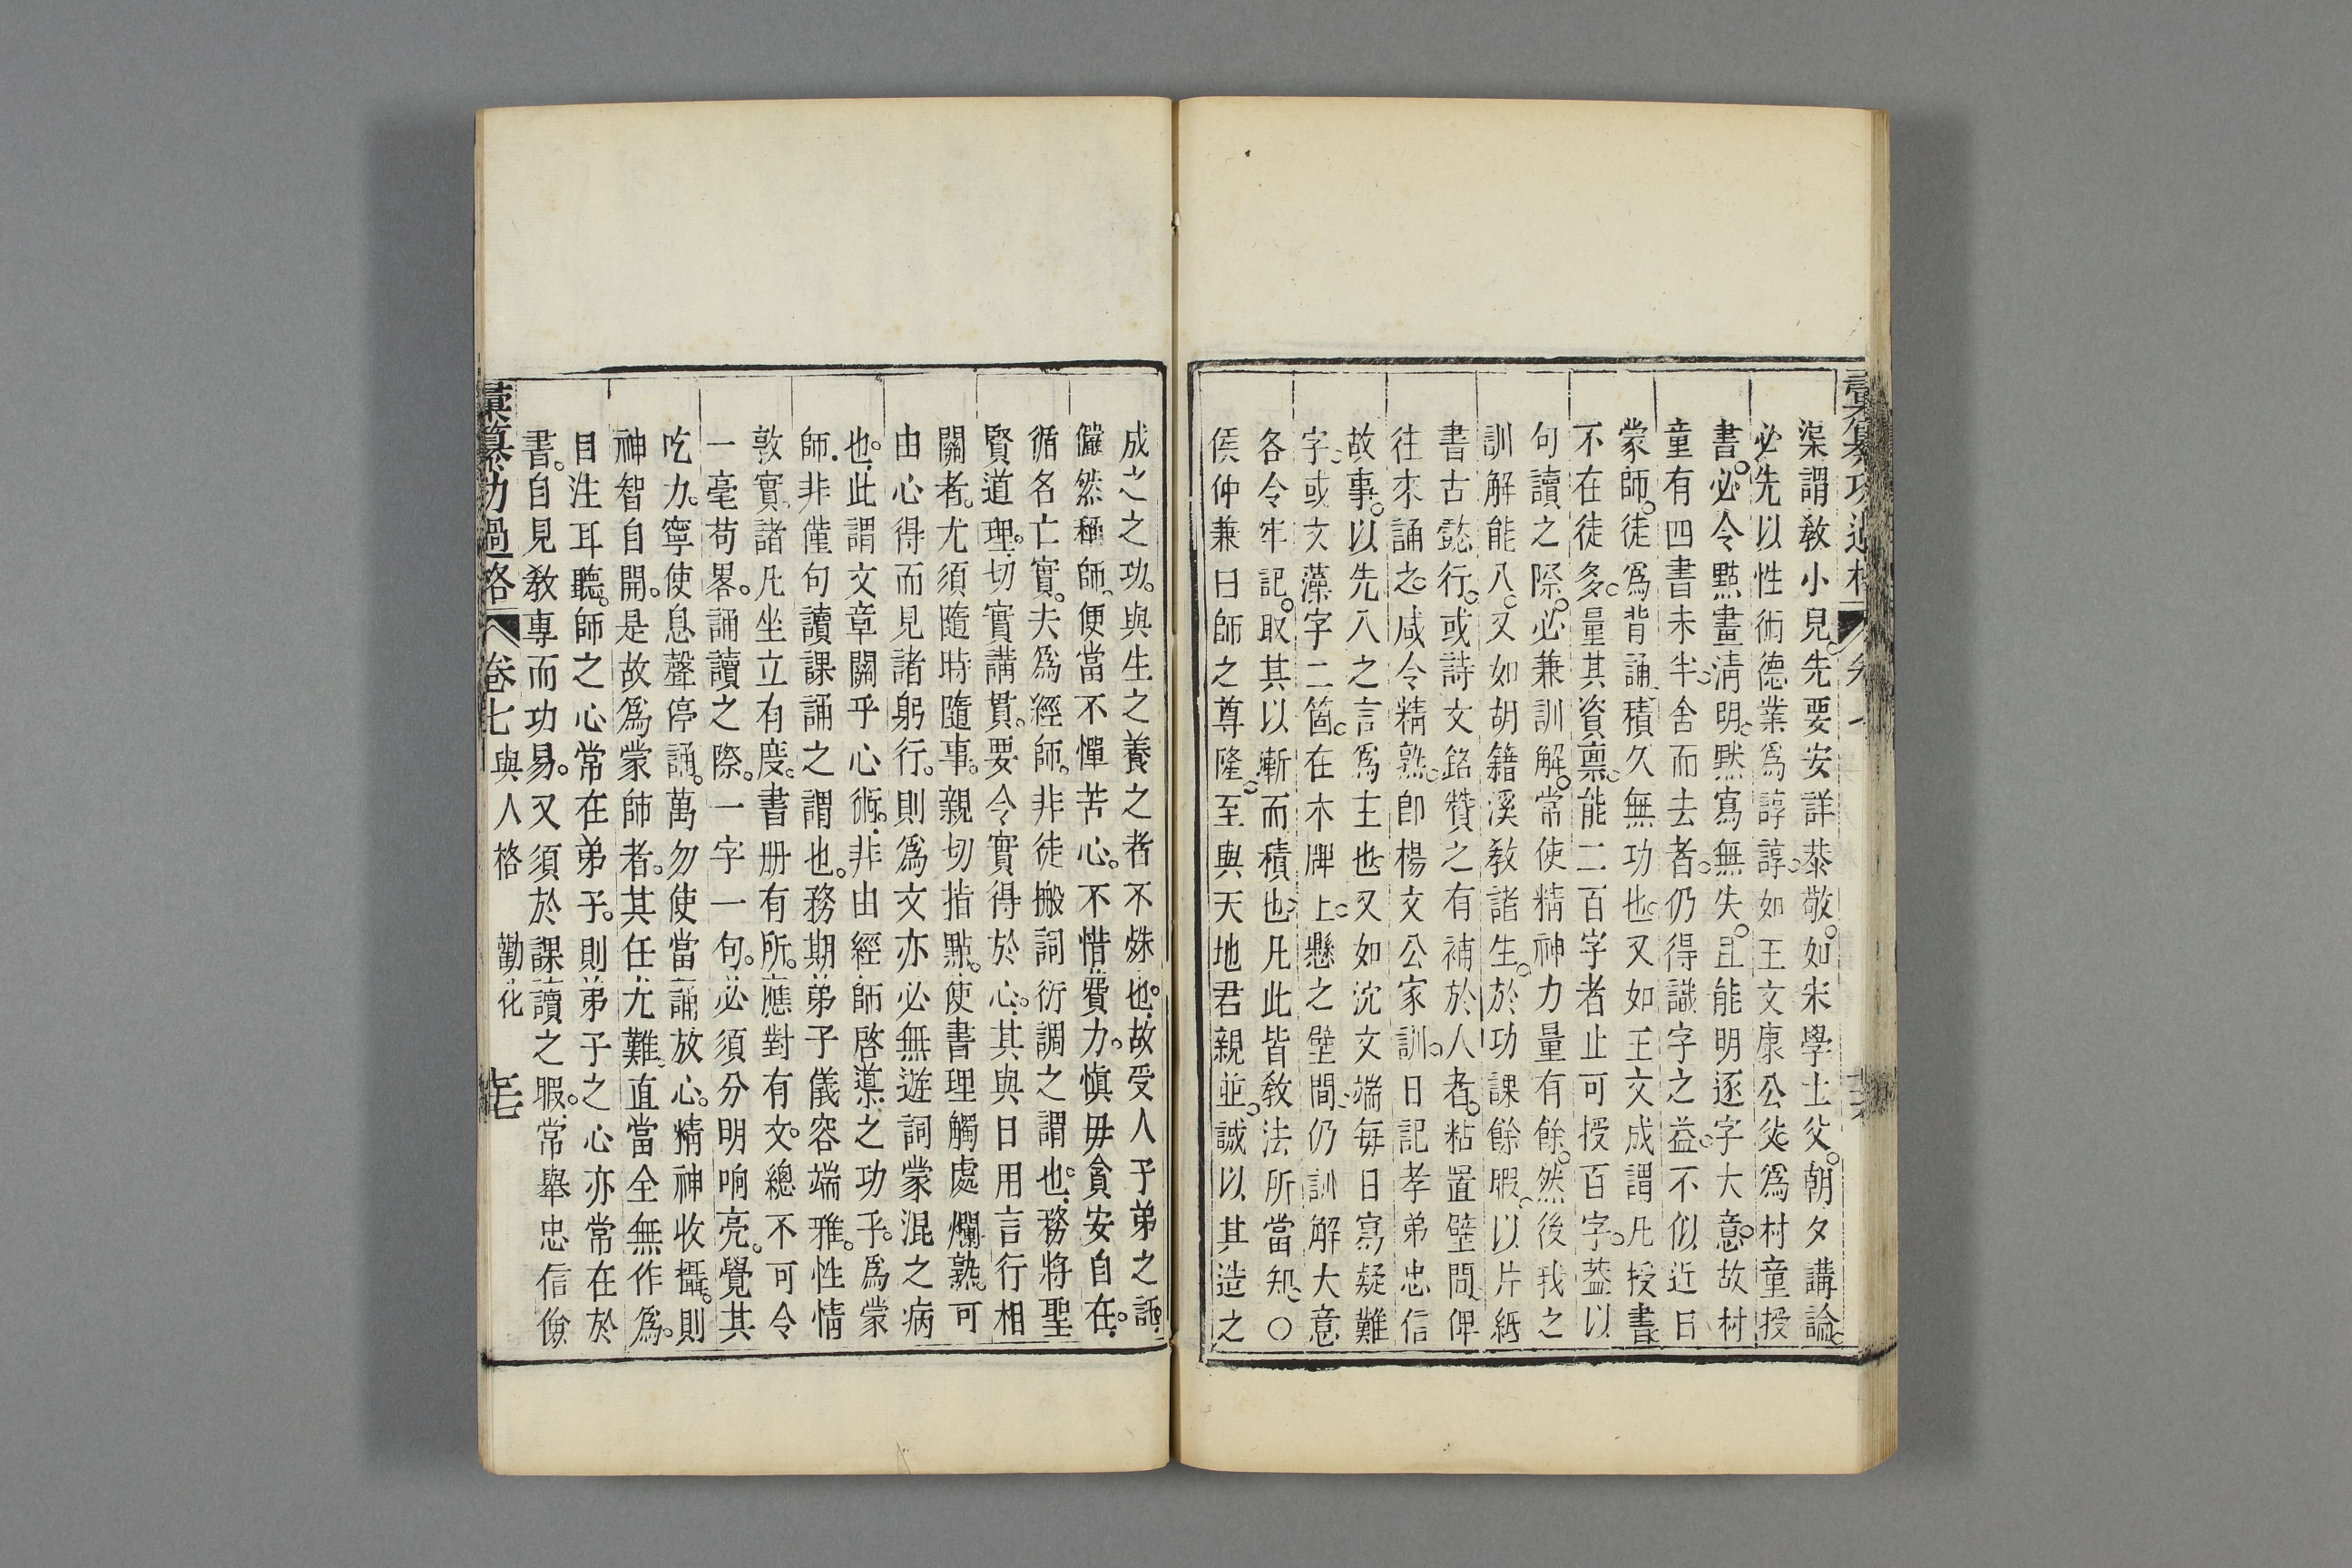 彙纂功過格 卷七
渠謂敎小兒。先要安詳恭敬。如宋學士父。朝夕講論。
必先以性術德業爲諄諄。如王文康公父。爲村童授
書。必令點畫淸明。默寫無失。且能明逐字大意。故村
童有四書未半。舍而去者。仍得識字之益。不似近日
蒙師。徒爲背誦。積久無功也。又如王文成謂凡授書
不在徒多。量其資禀。能二百字者止可授百字。葢以
句讀之際。必兼訓解。常使精神力量有餘。然後我之
訓解能入。又如胡籍溪敎諸生。於功課餘暇。以片紙
書古懿行。或詩文銘贊之有補於人者。粘置壁間。俾
往來誦之。咸令精熟。卽楊文公家訓。日記孝弟忠信
故事。以先入之言爲主也。又如沈文端每日寫疑難
字。或文藻字二箇。在木牌上。懸之壁間。仍訓解大意
各令牢記。取其以漸而積也。凡此皆敎法所當知。○
侯仲兼曰師之尊隆。至與天地君親並。誠以其造之
成之之功。與生之養之者不殊也。故受人子弟之託。
儼然稱師。便當不憚苦心。不惜費力。愼毋貪安自在。
循名亡實。夫爲經師。非徒搬詞衍調之謂也。務將聖
賢道理。切實講貫。要令實得於心。其與日用言行相
關者。尤須隨時隨事。親切指點。使書理觸處爛熟。可
由心得而見諸躬行。則爲文亦必無遊詞蒙混之病
也。此謂文章關乎心術。非由經師啓導之功乎。爲蒙
師。非僅句讀課誦之謂也。務期弟子儀容端雅。性情
敦實。諸凡坐立有度。書册有所。應對有文。總不可令
一毫苟畧。誦讀之際。一字一句。必須分明响亮。覺其
吃力。寧使息聲停誦。萬勿使當誦放心。精神收攝。則
神智自開。是故爲蒙師者。其任尤難。直當全無作爲。
目注耳聽。師之心常在弟子。則弟子之心亦常在於
書。自見敎專而功易。又須於課讀之暇。常舉忠信儉
彙纂功過格 卷七 與人格 勸化